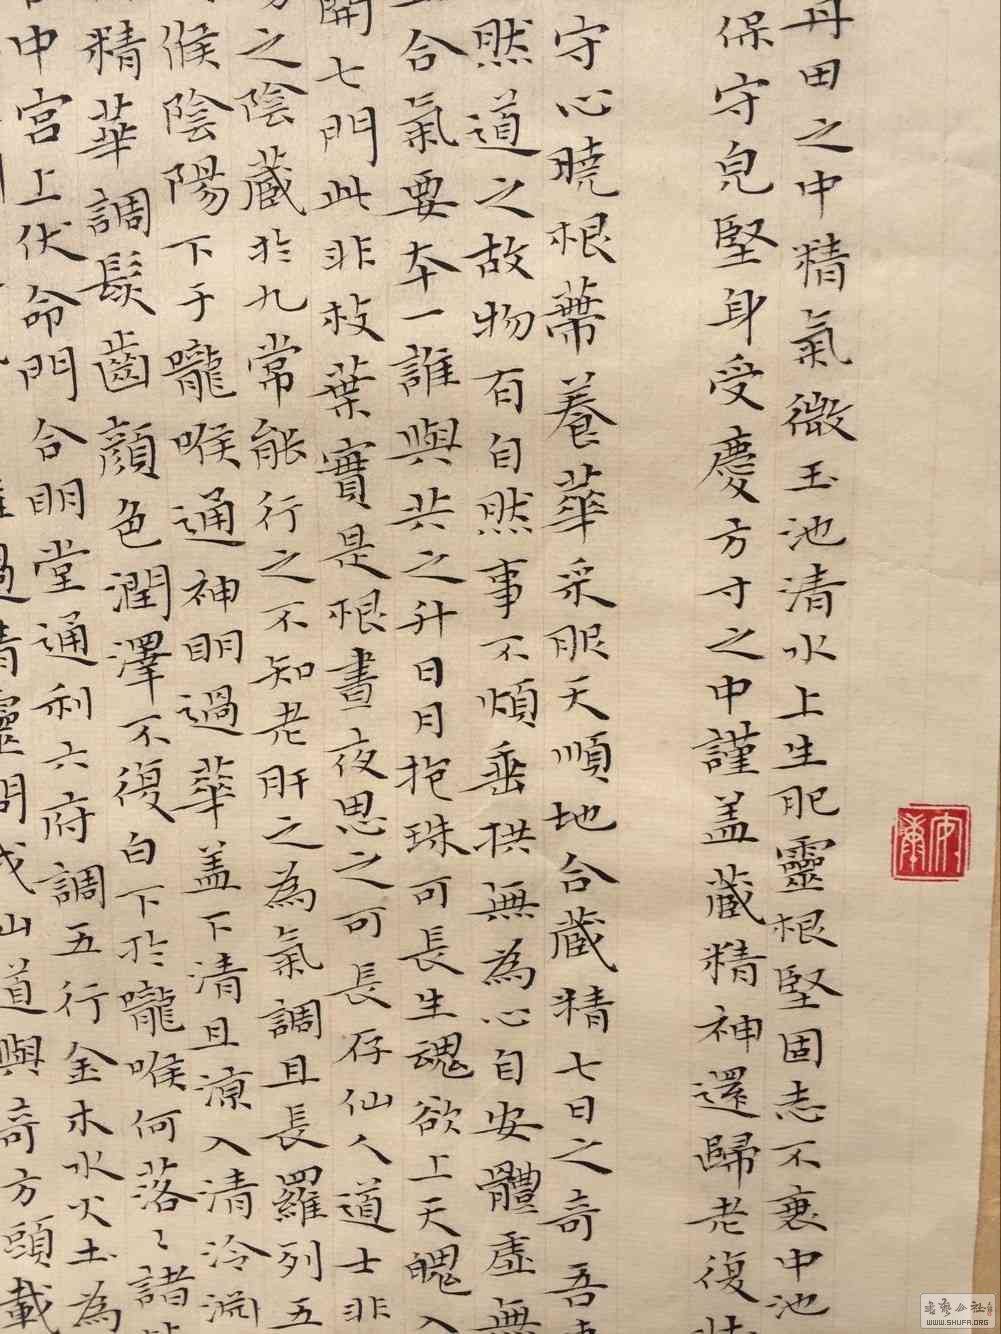 丹田之中精氣微玉池清水上生肥靈根堅固志不衰中池
保守皃堅身受慶方寸之中謹盖藏精神還歸老復
守心曉根蔕養華采服天順地合藏精七日之奇吾
然道之故物有自然事不煩垂拱無為心自安體虛無
合氣要本一誰與共之升日月抱珠可長生魂欲上天魄入
開七門此非枝葉實是根晝夜思之可長存仙人道士非
之陰藏於九常能行之不知老肝之為氣調且長羅列五
候陰陽下于嚨喉通神明過華盖下清且涼入清泠淵
精華調髮齒顏色潤澤不復白下於嚨喉何落〻諸
中宮上伏命門合明堂通利六府調五行金木水火土為
道與
奇方頭載
WWW.SHUFA.ORG